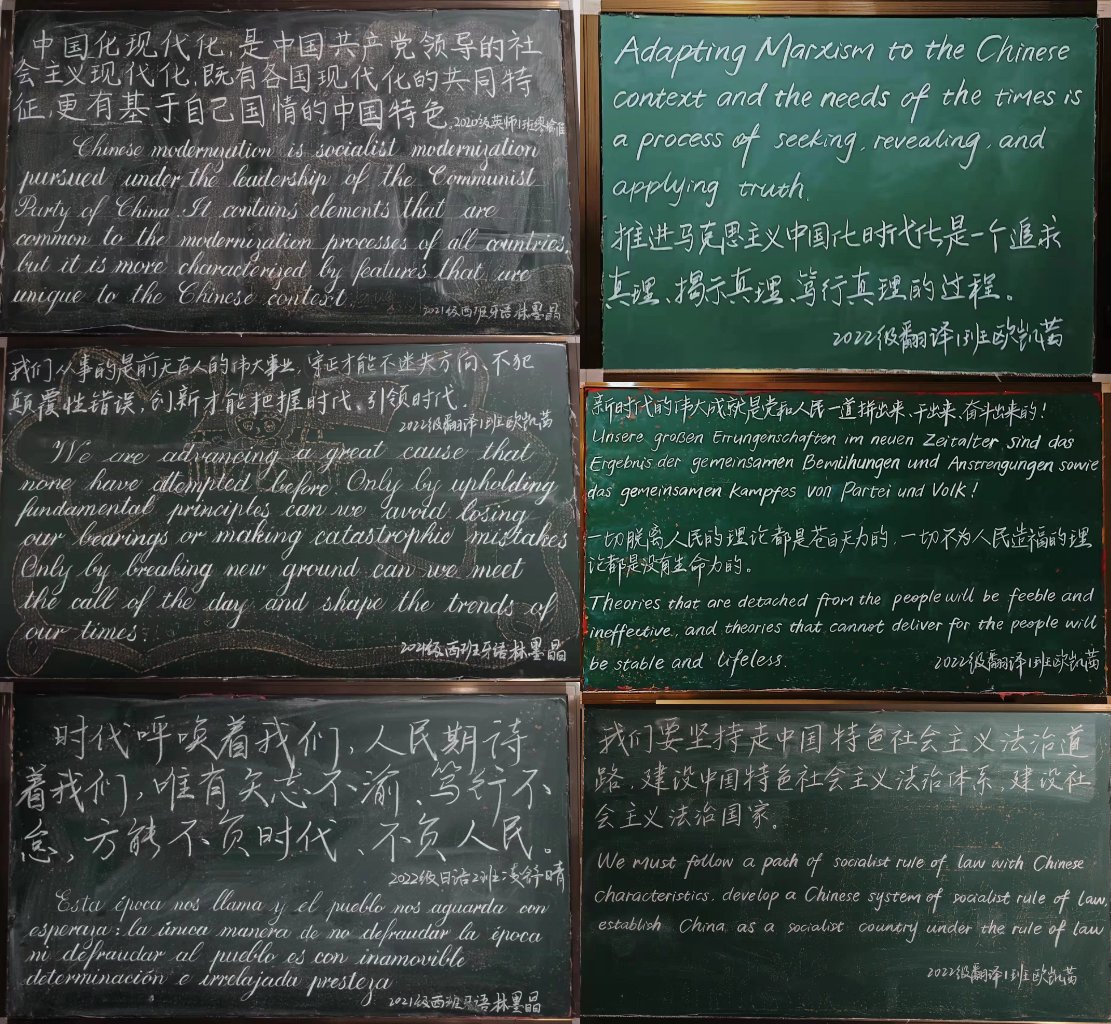 中国化现代化,是中国共产党领导的社
会主义现代化,既有各国现代化的共同特
征,更有基于自己国情的中国特色.
2020级英师1班
Chinese modernization is socialist modernization
pursued under the leadership of the Communist
Party of China. It contains elements that are
common to the modernization processes of all countries,
but it is more characterized by features that are
unique to the Chinese context.
2021级西班牙语林墨晶
Adapting Marxism to the Chinese
context and the needs of the times is
a process of seeking, revealing, and
applying truth.
推进马克思主义中国化时代化是一个追求
真理、揭示真理、笃行真理的过程。
2022级翻译1班欧凯茜
我们从事的是前无古人的伟大事业,守正才能不迷失方向、不犯
颠覆性错误,创新才能把握时代、引领时代.
2022级翻译1班欧凯茜
We are advancing a great cause that
none have attempted before. Only by upholding
fundamental principles can we avoid losing
our bearings or making catastrophic mistakes
Only by breaking new ground can we meet
the call of the day and shape the trends of
our times.
2021级西班牙语林墨晶
新时代的伟大成就是党和人民一道拼出来、干出来、奋斗出来的!
Unsere großen Errungenschaften im neuen Zeitalter sind das
Ergebnis der gemeinsamen Bemühungen und Anstrengungen sowie
das gemeinsamen Kampfes von Partei und Volk!
一切脱离人民的理论都是苍白无力的,一切不为人民造福的理
论都是没有生命力的。
Theories that are detached from the people will be feeble and
ineffective, and theories that cannot deliver for the people will
be stable and lifeless.
2022级翻译1班欧凯茜
时代呼唤着我们,人民期待
着我们,唯有矢志不渝、笃行不
怠,方能不负时代、不负人民。
2022级日语2班
Esta época nos llama y el pueblo nos aguarda con
esperaza: la única manera de no defraudar la época
ni defraudar al pueblo es con inamovible
determinación e irrelajada presteza
2021级西班牙语林墨晶
我们要坚持走中国特色社会主义法治道
路,建设中国特色社会主义法治体系,建设社
会主义法治国家。
We must follow a path of socialist rule of law with Chinese
characteristics, develop a Chinese system of socialist rule of law,
establish China as a socialist country under the rule of law
2022级翻译1班欧凯茜